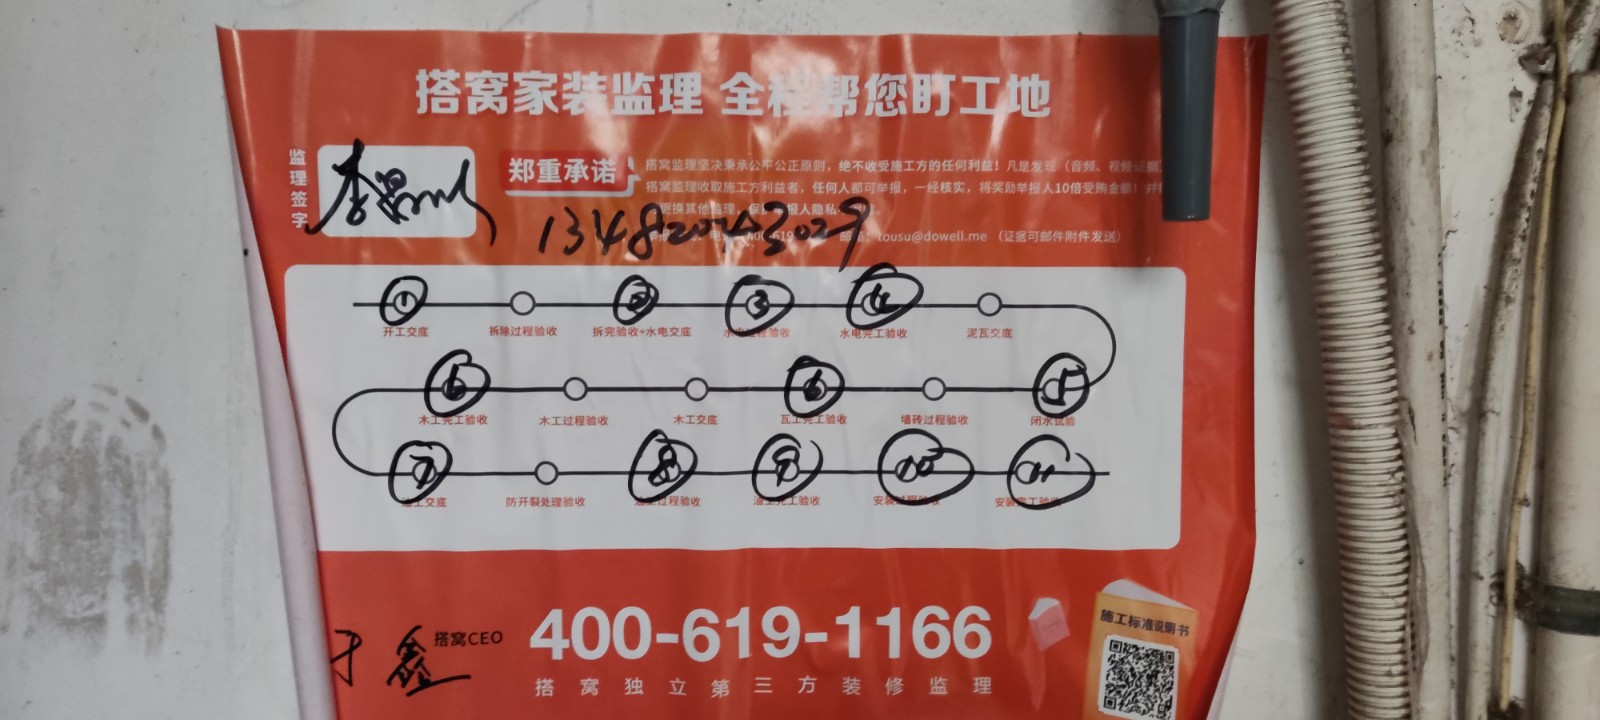 搭窝家装监理 全程帮您盯工地
监理签字
郑重承诺
搭窝监理坚决秉承公平公正原则，绝不收受施工方的任何利益！凡是发现（音频、视频证据
搭窝监理收取施工方利益者，任何人都可举报，一经核实，将奖励举报人10倍受贿金额！并
更换其他监理，保护举报人隐私
邮箱：tousu@dowell.me （证据可邮件附件发送）
① ② ③ ④
开工交底 拆除过程验收 拆完验收+水电交底 水电过程验收 水电完工验收 泥瓦交底
⑥ ⑥ ⑤
木工完工验收 木工过程验收 木工交底 瓦工完工验收 墙砖过程验收 闭水试验
⑦ ⑧ ⑨ ⑩ ⑪
油工交底 防开裂处理验收 油工过程验收 油工完工验收 安装过程验收 安装完工验收
于鑫 搭窝CEO
400-619-1166
搭窝独立第三方装修监理
施工标准说明书